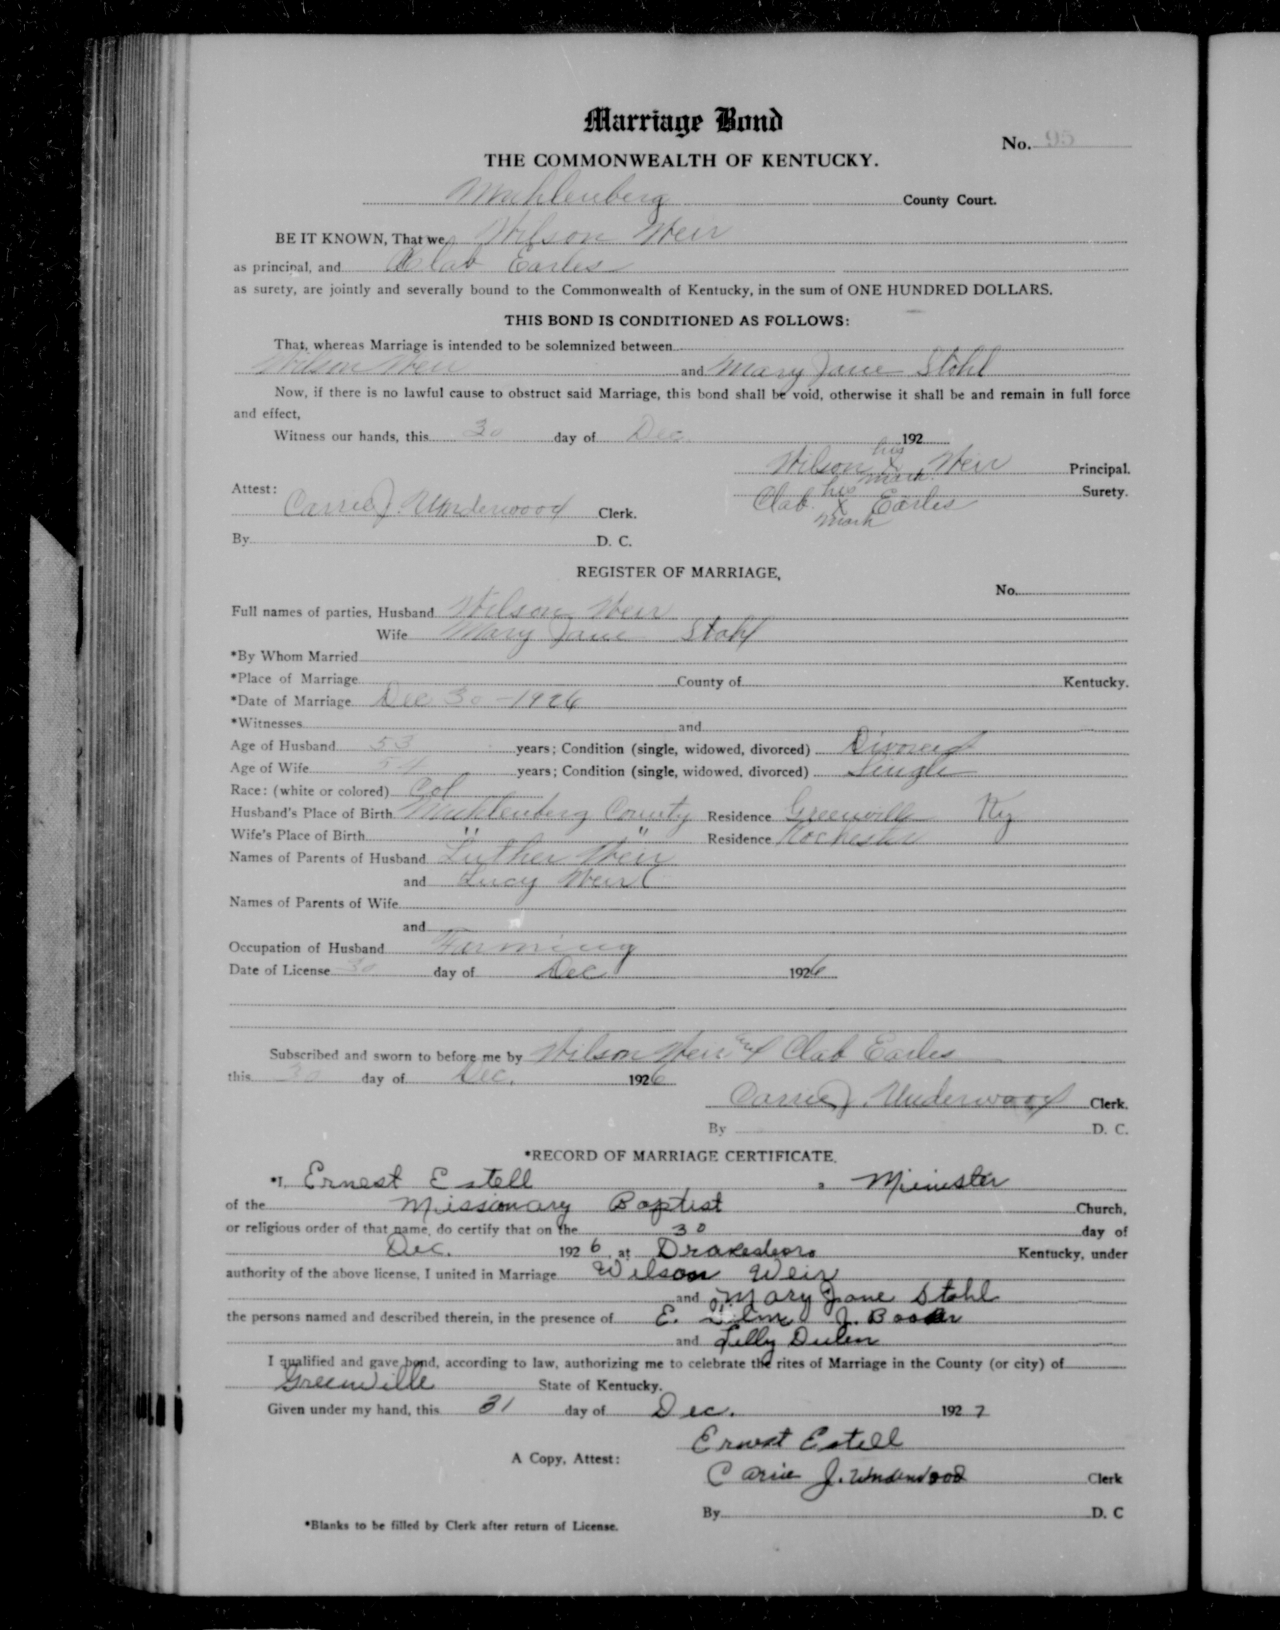 Marriage Bond
No. 95
THE COMMONWEALTH OF KENTUCKY.
Muhlenberg County Court.
BE IT KNOWN, That we Wilson Weir
as principal, and Clab Earles
as surety, are jointly and severally bound to the Commonwealth of Kentucky, in the sum of ONE HUNDRED DOLLARS.
THIS BOND IS CONDITIONED AS FOLLOWS:
That, whereas Marriage is intended to be solemnized between
Wilson Weir and Mary Jane Stohl
Now, if there is no lawful cause to obstruct said Marriage, this bond shall be void, otherwise it shall be and remain in full force
and effect,
Witness our hands, this 30 day of Dec. 192
his
Wilson X Weir Principal.
mark.
Attest: his Surety.
Clab X Earles
mark
Carrie J. Underwood Clerk.
By D. C.
REGISTER OF MARRIAGE,
No.
Full names of parties, Husband Wilson Weir
Wife Mary Jane Stohl
*By Whom Married
*Place of Marriage County of Kentucky.
*Date of Marriage Dec 30 - 1926
*Witnesses and
Age of Husband 53 years; Condition (single, widowed, divorced) Divorced
Age of Wife 54 years; Condition (single, widowed, divorced) Single
Race: (white or colored) Col
Husband's Place of Birth Muhlenberg County Residence Greenville Ky
Wife's Place of Birth " " Residence Rochester
Names of Parents of Husband Luther Weir
and Lucy Weir
Names of Parents of Wife
and
Occupation of Husband Farming
Date of License 30 day of Dec 1926
Subscribed and sworn to before me by Wilson Weir and Clab Earles
this 30 day of Dec. 1926
Carrie J. Underwood Clerk.
By D. C.
*RECORD OF MARRIAGE CERTIFICATE.
*I, Ernest Estell a Minister
of the Missionary Baptist Church,
or religious order of that name, do certify that on the 30 day of
Dec. 192 6, at Drakesboro Kentucky, under
authority of the above license, I united in Marriage Wilson Weir
and Mary Jane Stohl
the persons named and described therein, in the presence of E. J.
and Lilly Dulen
I qualified and gave bond, according to law, authorizing me to celebrate the rites of Marriage in the County (or city) of
Greenville State of Kentucky.
Given under my hand, this 31 day of Dec. 192 7
Ernest Estell
A Copy, Attest:
Carie J. Underwood Clerk
By D. C
*Blanks to be filled by Clerk after return of License.